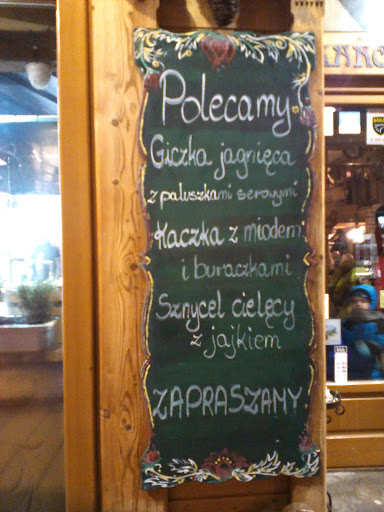 Polecamy
Giczka jagnięca
z paluszkami serowymi
Kaczka z miodem
i buraczkami
Sznycel cielęcy
z jajkiem
ZAPRASZAMY